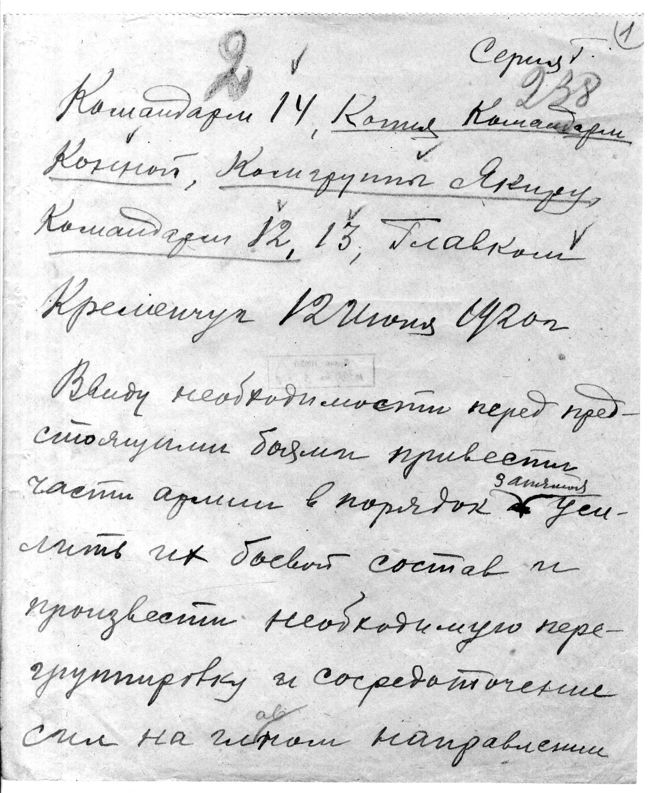 1
2
Серия Г.
238
Командарм 14, Копия Командарм
Конной, Комгруппы Якиру,
Командарм 12, 13, Главком
Кременчуг 12 Июня 1920г
Ввиду необходимости перед пред-
стоящими боями привести
части армии в порядок запятая Уси-
лить их боевой состав и
произвести необходимую пере-
группировку и сосредоточение
сил на главном направлении